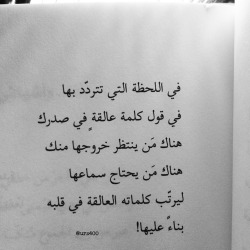 في اللحظة التي تتردّد بها
في قول كلمة عالقةٍ في صدرك
هناك مَن ينتظر خروجها منك
هناك مَن يحتاج سماعها
ليرتّب كلماته العالقة في قلبه
بناءً عليها!